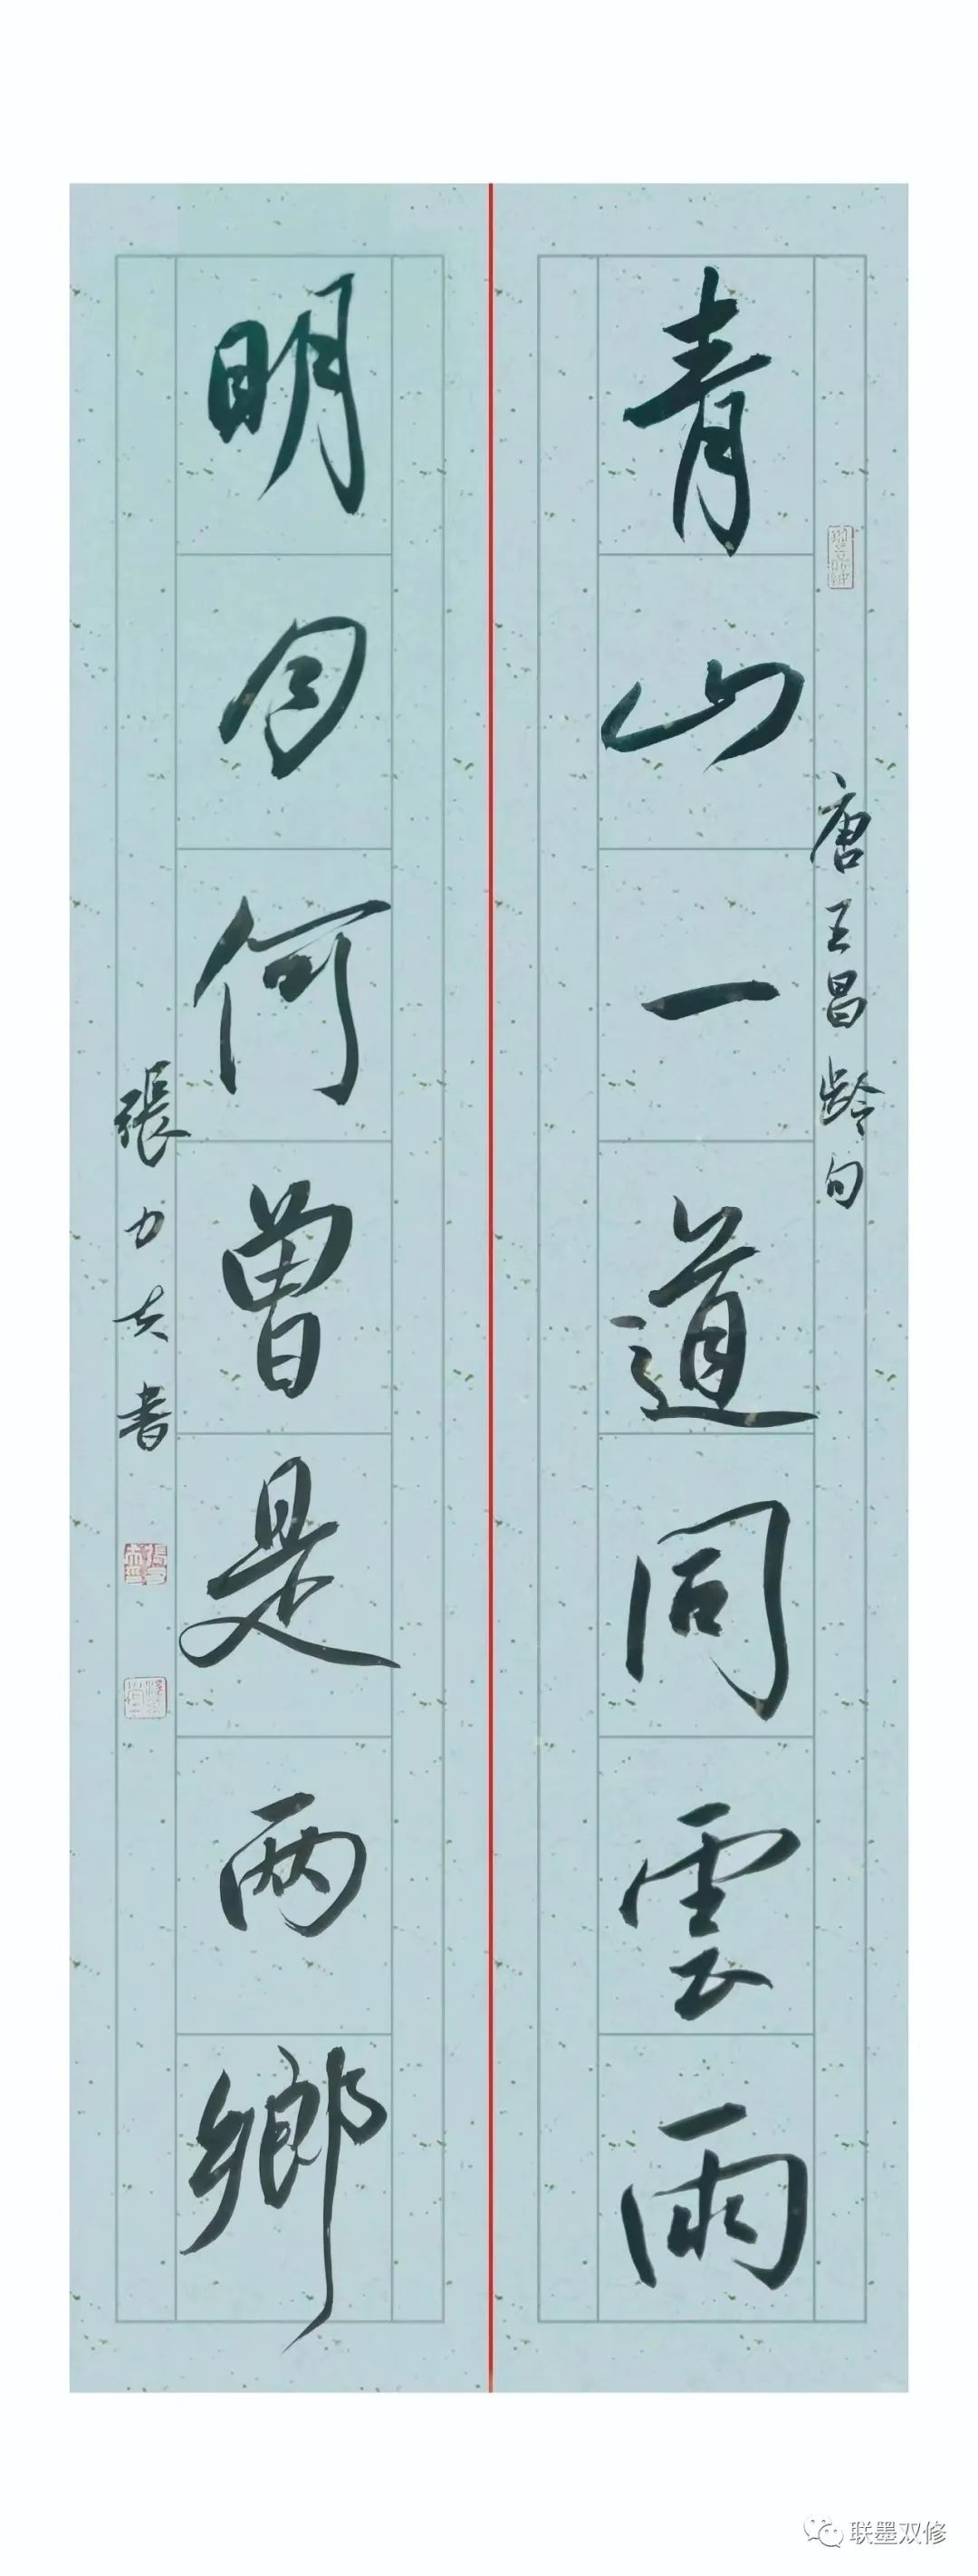 青山一道同雲雨
唐王昌龄句
明月何曾是两鄉
張力夫書
联墨双修